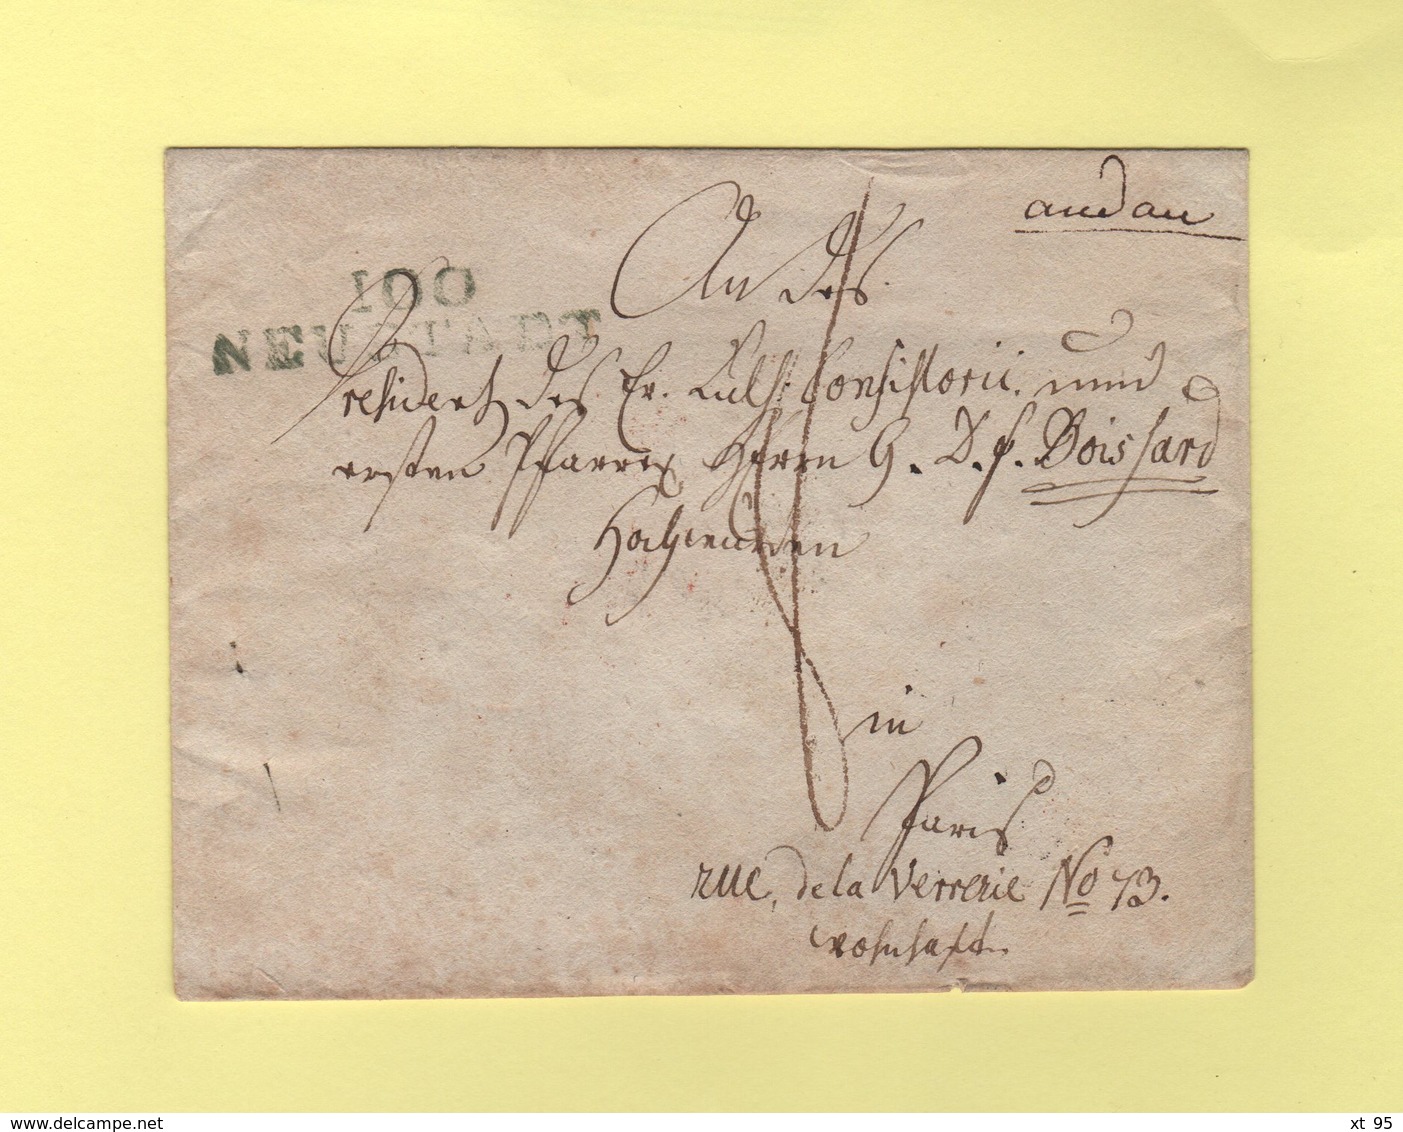 andau
100
NEUSTADT
An des
Präsident des Ev. Luth. Consistorii. und
ersten Pfarrer Herrn G. D. F. Boissard
Hochwürden
in
Paris
rue, de la Verrerie No 73.
wohnhaft.
delcampe.net
xt 95